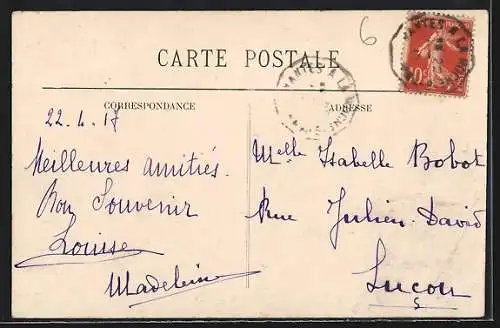 6
CARTE POSTALE
NANTES A LA
NANTES A LA
10
CORRESPONDANCE
ADRESSE
22.4.17
Meilleures amitiés.
Bon Souvenir
Louise
Madeleine
Melle Isabelle Bobot
Rue Julien-David
Luçon